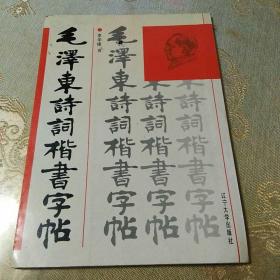 毛澤東詩詞楷書字帖
毛澤東詩詞楷書字帖
毛澤東詩詞楷書字帖
詩詞楷書字帖
辽宁大学出版社